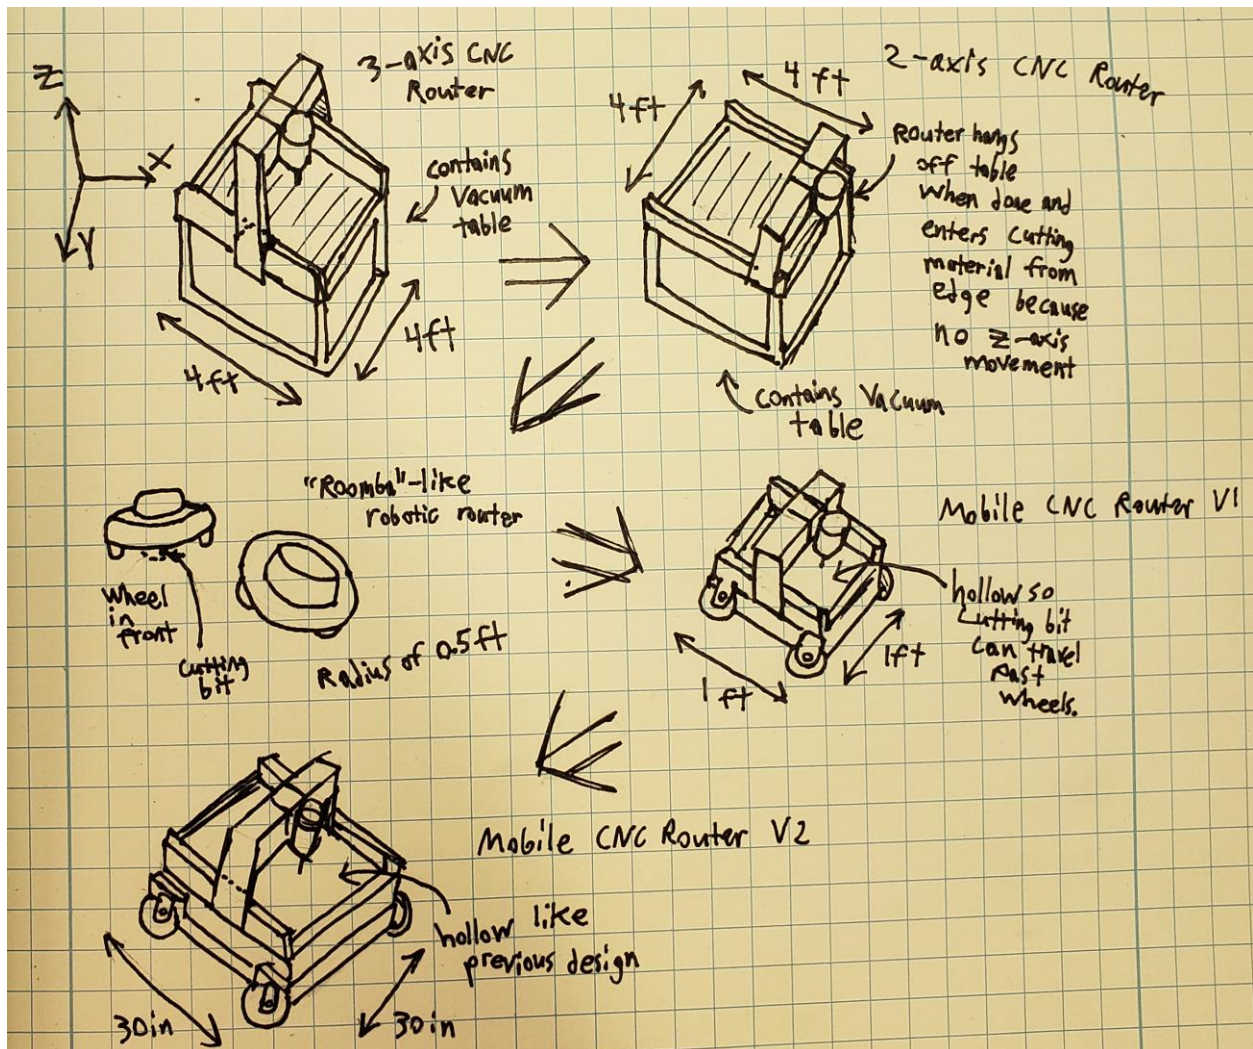 Z
X
Y
3-axis CNC
Router
contains
Vacuum
table
4ft
4ft
2-axis CNC Router
4ft
4ft
Router hangs
off table
when done and
enters cutting
material from
edge because
no z-axis
movement
contains Vacuum
table
"Roomba"-like
robotic router
wheel
in
front
cutting
bit
Radius of 0.5ft
Mobile CNC Router V1
hollow so
cutting bit
can travel
past
wheels.
1ft
1ft
Mobile CNC Router V2
hollow like
previous design
30in
30in